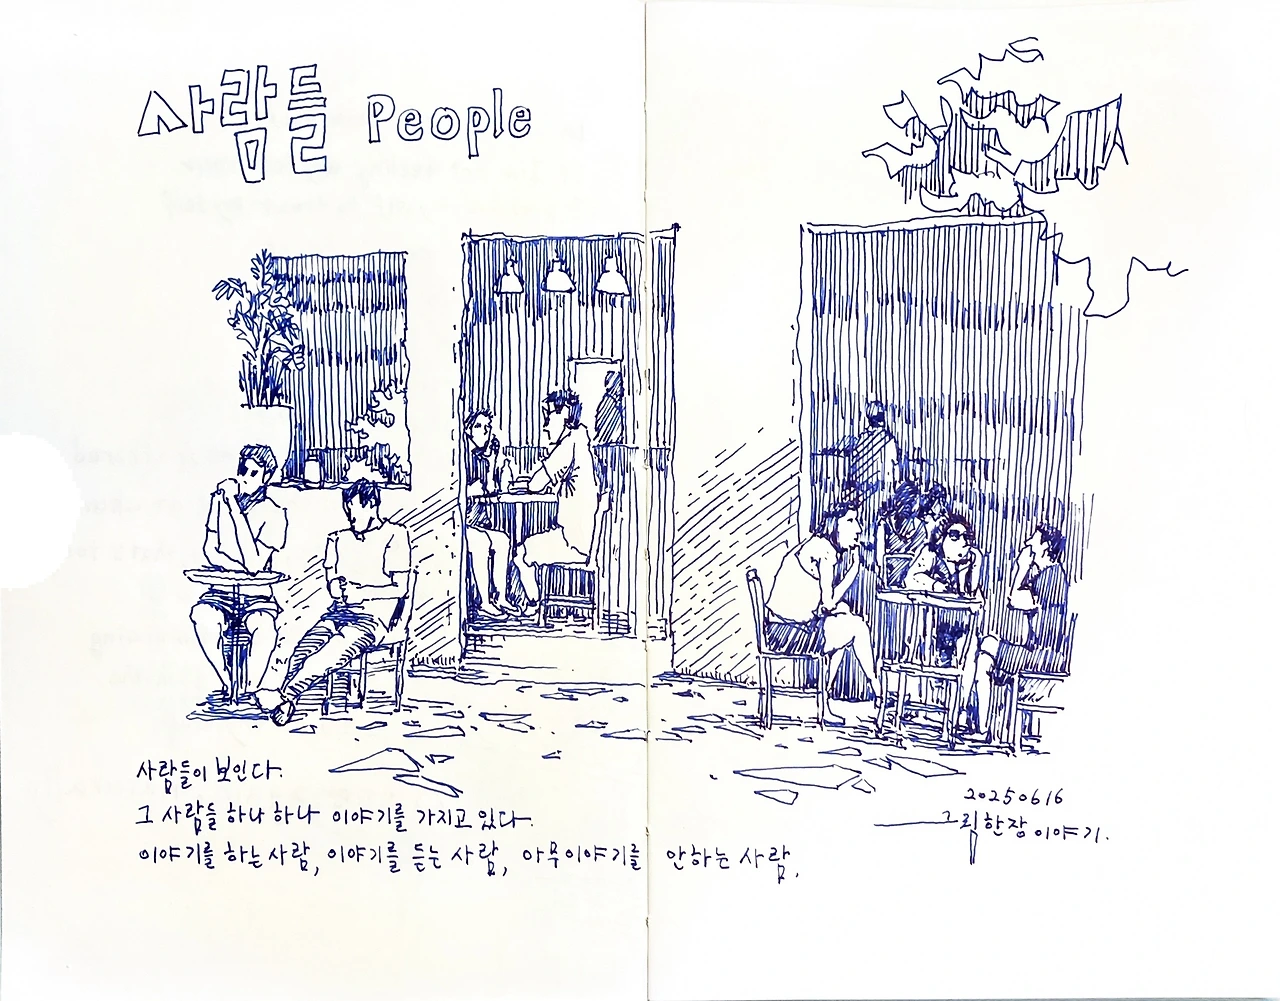 사람들 People
사람들이 보인다.
그 사람들 하나 하나 이야기를 가지고 있다.
이야기를 하는 사람, 이야기를 듣는 사람, 아무 이야기를 안하는 사람.
20250616
그림한장이야기.